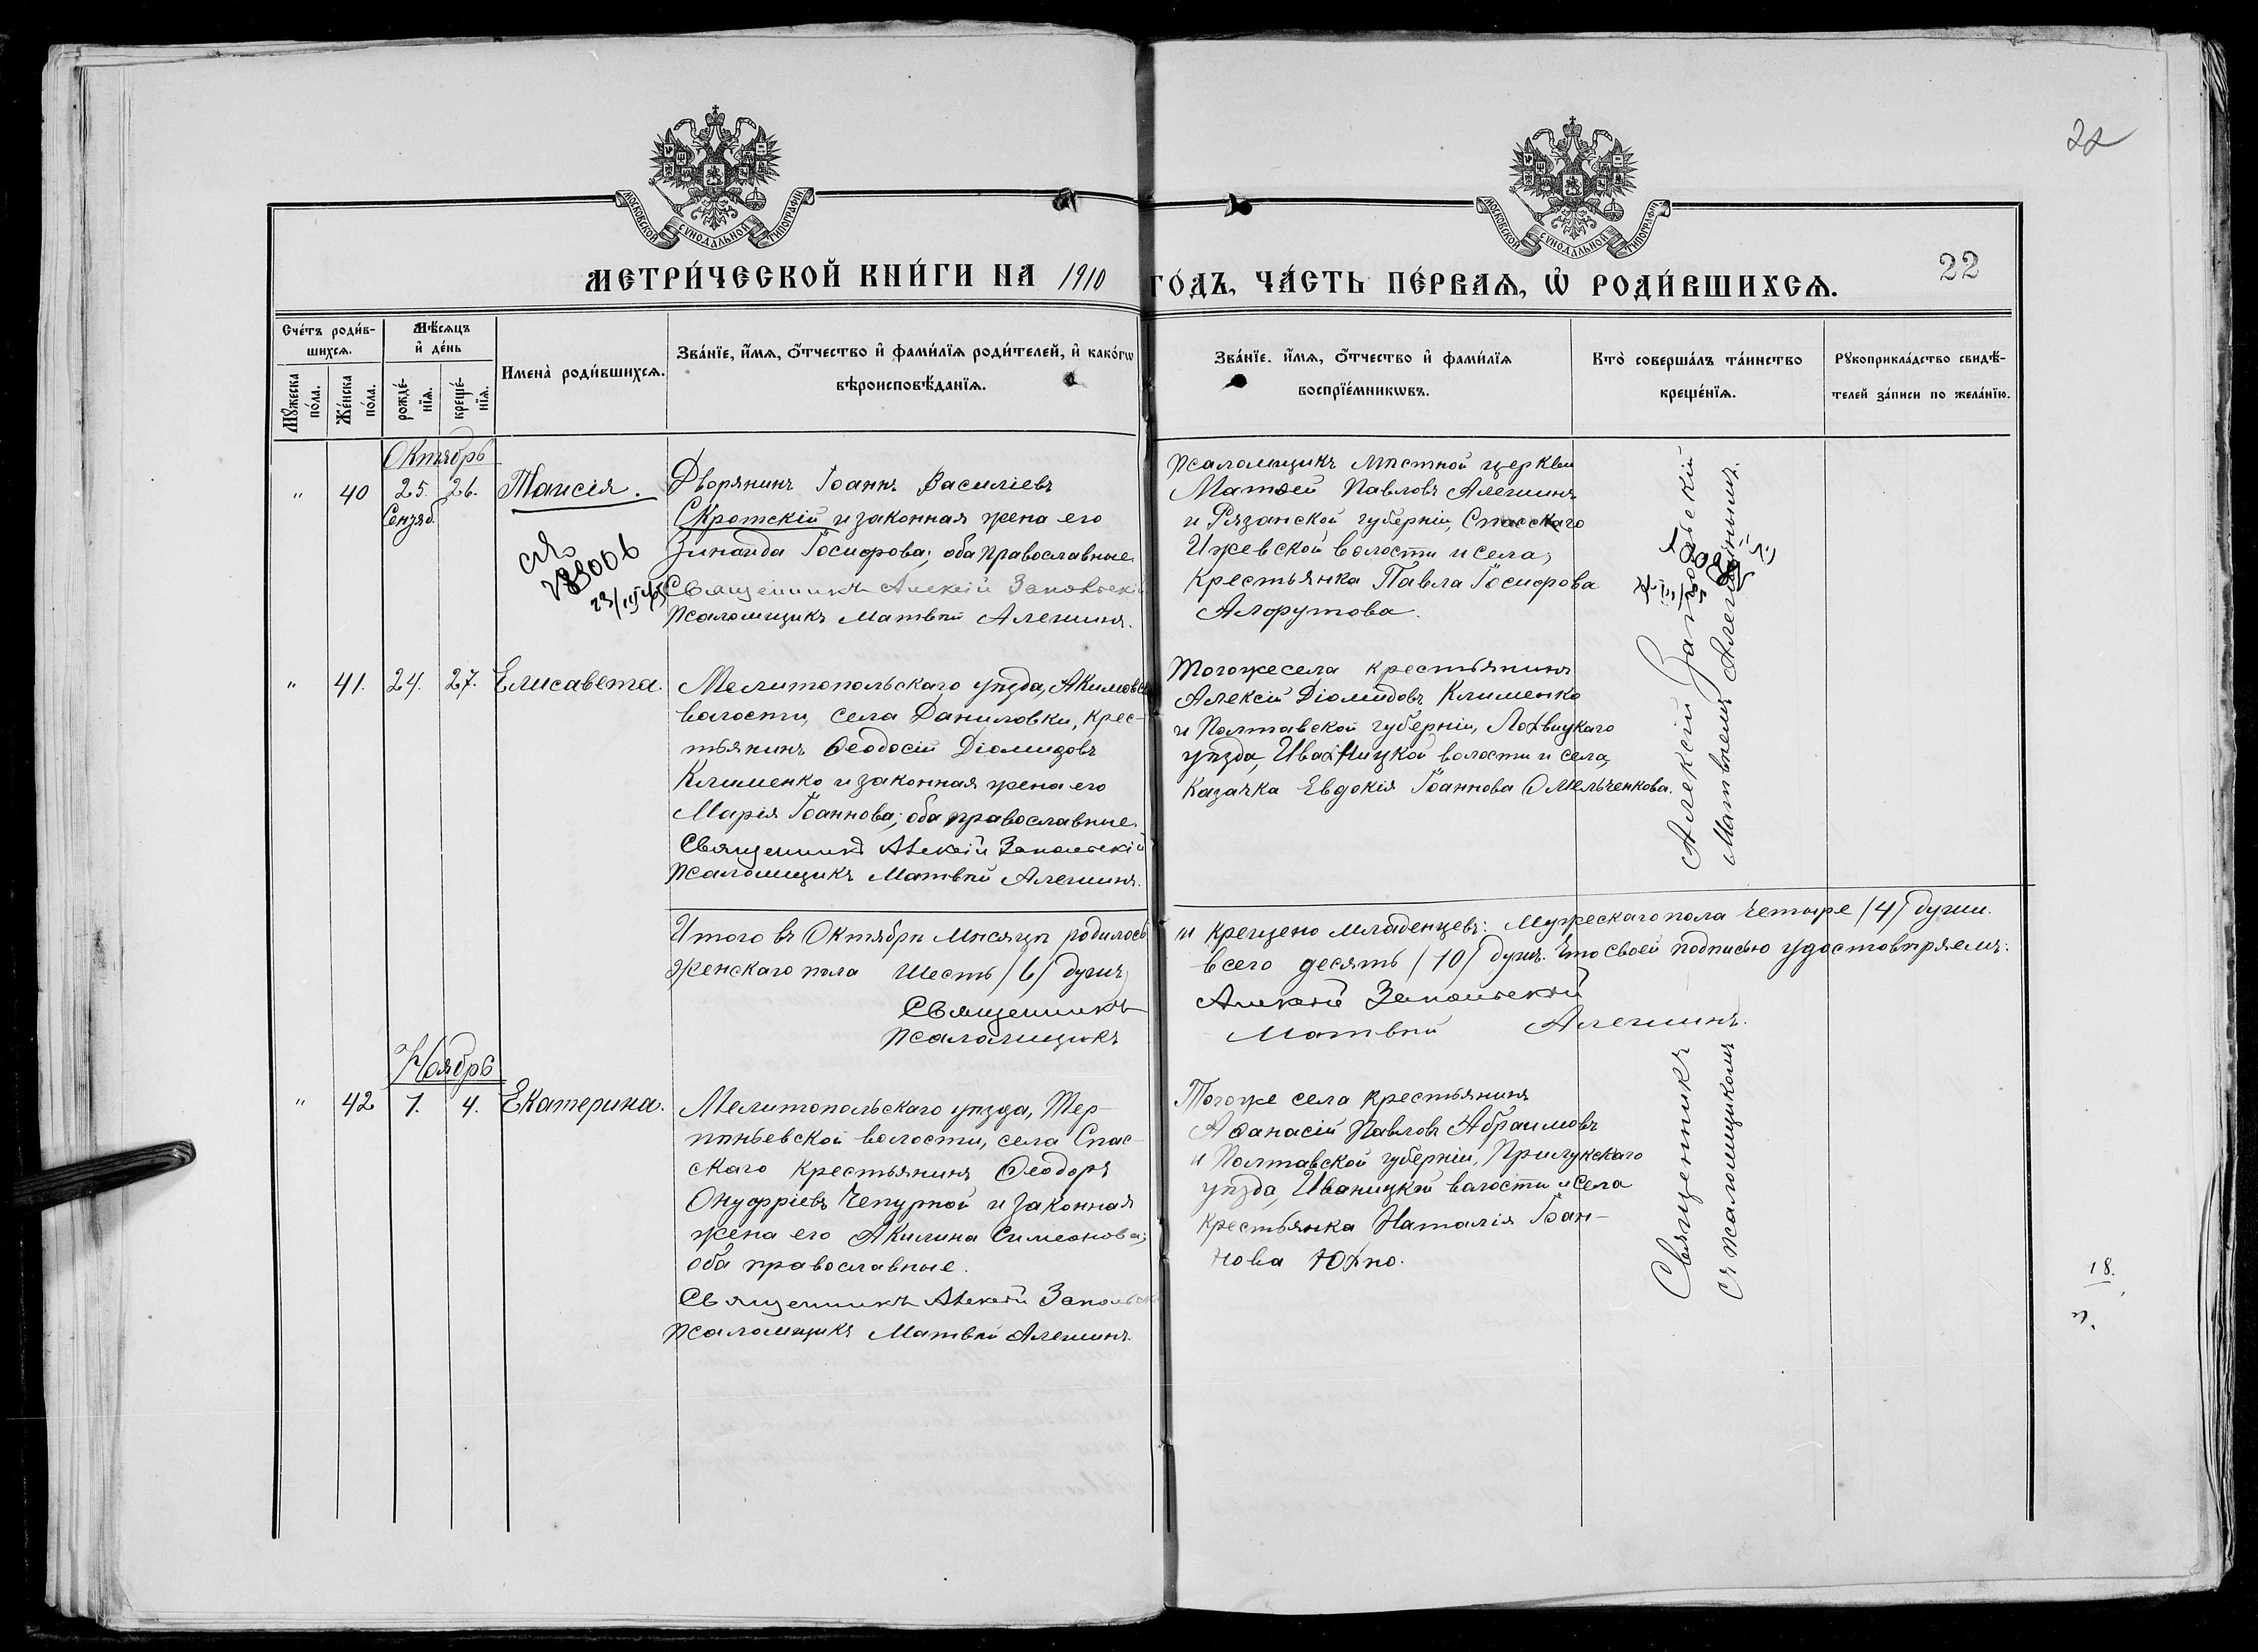 22
МОСКОВСКОЙ СѴНОДАЛЬНОЙ ТИПОГРАФІИ
МОСКОВСКОЙ СѴНОДАЛЬНОЙ ТИПОГРАФІИ
МЕТРИ́ЧЕСКОЙ КНИ́ГИ НА 1910 ГО́ДЪ, ЧА́СТЬ ПЕ́РВАѦ, Ѡ҆ РОДИ́ВШИХСѦ.
22
Сче́тъ роди́в-
шихсѧ.
Мꙋ́жеска
по́ла.
Же́нска
по́ла.
Мѣ́сѧцъ
и҆ де́нь
рожде́-
нїѧ.
креще́-
нїѧ.
Имена̀ роди́вшихсѧ.
Зва́нїе, и҆́мѧ, ѻ҆́тчество и҆ фами́лїѧ роди́телей, и҆ како́гѡ
вѣроисповѣ́данїѧ.
Зва́нїе, и҆́мѧ, ѻ҆́тчество и҆ фами́лїѧ
воспрїе́мникѡвъ.
Кто̀ соверша́лъ та́инство
креще́нїѧ.
Рꙋкоприкла́дство свидѣ́-
телей за́писи по жела́нїю.
Октябрь
" 40 25. 26. Таисія.
Сентяб.
Дворянинъ Іоаннъ Василіевъ
Скротскій и законная жена его
Зинаида Іосифова; оба православные
Священникъ Алексій Запольскій
Псаломщикъ Матвѣй Алешинъ.
Псаломщикъ мѣстной церкви
Матѳей Павловъ Алешинъ
и Рязанской губерніи, Спасскаго
Ижевской волости и села,
крестьянка Павла Іосифова
Алфутова.
" 41. 24. 27. Елисавета.
Мелитопольскаго уѣзда, Акимовск
волости, села Даниловки, крес-
тьянинъ Ѳеодосій Діомидовъ
Клименко и законная жена его
Марія Іоаннова; оба православные.
Священникъ Алексій Запольскій
Псаломщикъ Матвѣй Алешинъ.
Тогоже села крестьянинъ
Алексій Діомидовъ Клименко
и Полтавской губерніи, Лохвицкаго
уѣзда, Ивахницкой волости и села,
казачка Евдокія Іоаннова Омельченкова.
Алексій Запольскій
Матвѣемъ Алешинымъ.
Итого въ Октябрѣ мѣсяцѣ родилось и крещено младенцевъ: мужескаго пола четыре /4/ души.
женскаго пола шесть /6/ душъ, всего десять /10/ душъ. Что своей подписью удостовѣряемъ:
Священникъ Алексій Запольскій
Псаломщикъ Матвѣй Алешинъ.
Ноябрь
" 42 1. 4. Екатерина.
Мелитопольскаго уѣзда, Тер-
пѣньевской волости, села Спас-
скаго крестьянинъ Ѳеодоръ
Онуфріевъ Чепурной и законная
жена его Акилина Симеонова;
оба православные.
Священникъ Алексій Запольск
Псаломщикъ Матвѣй Алешинъ.
Тогоже села крестьянинъ
Аѳанасій Павловъ Абраимовъ
и Полтавской губерніи, Прилукскаго
уѣзда, Иваницкой волости и села
крестьянка Наталія Іоан-
нова Юхно.
Священникъ
съ псаломщикомъ
18.